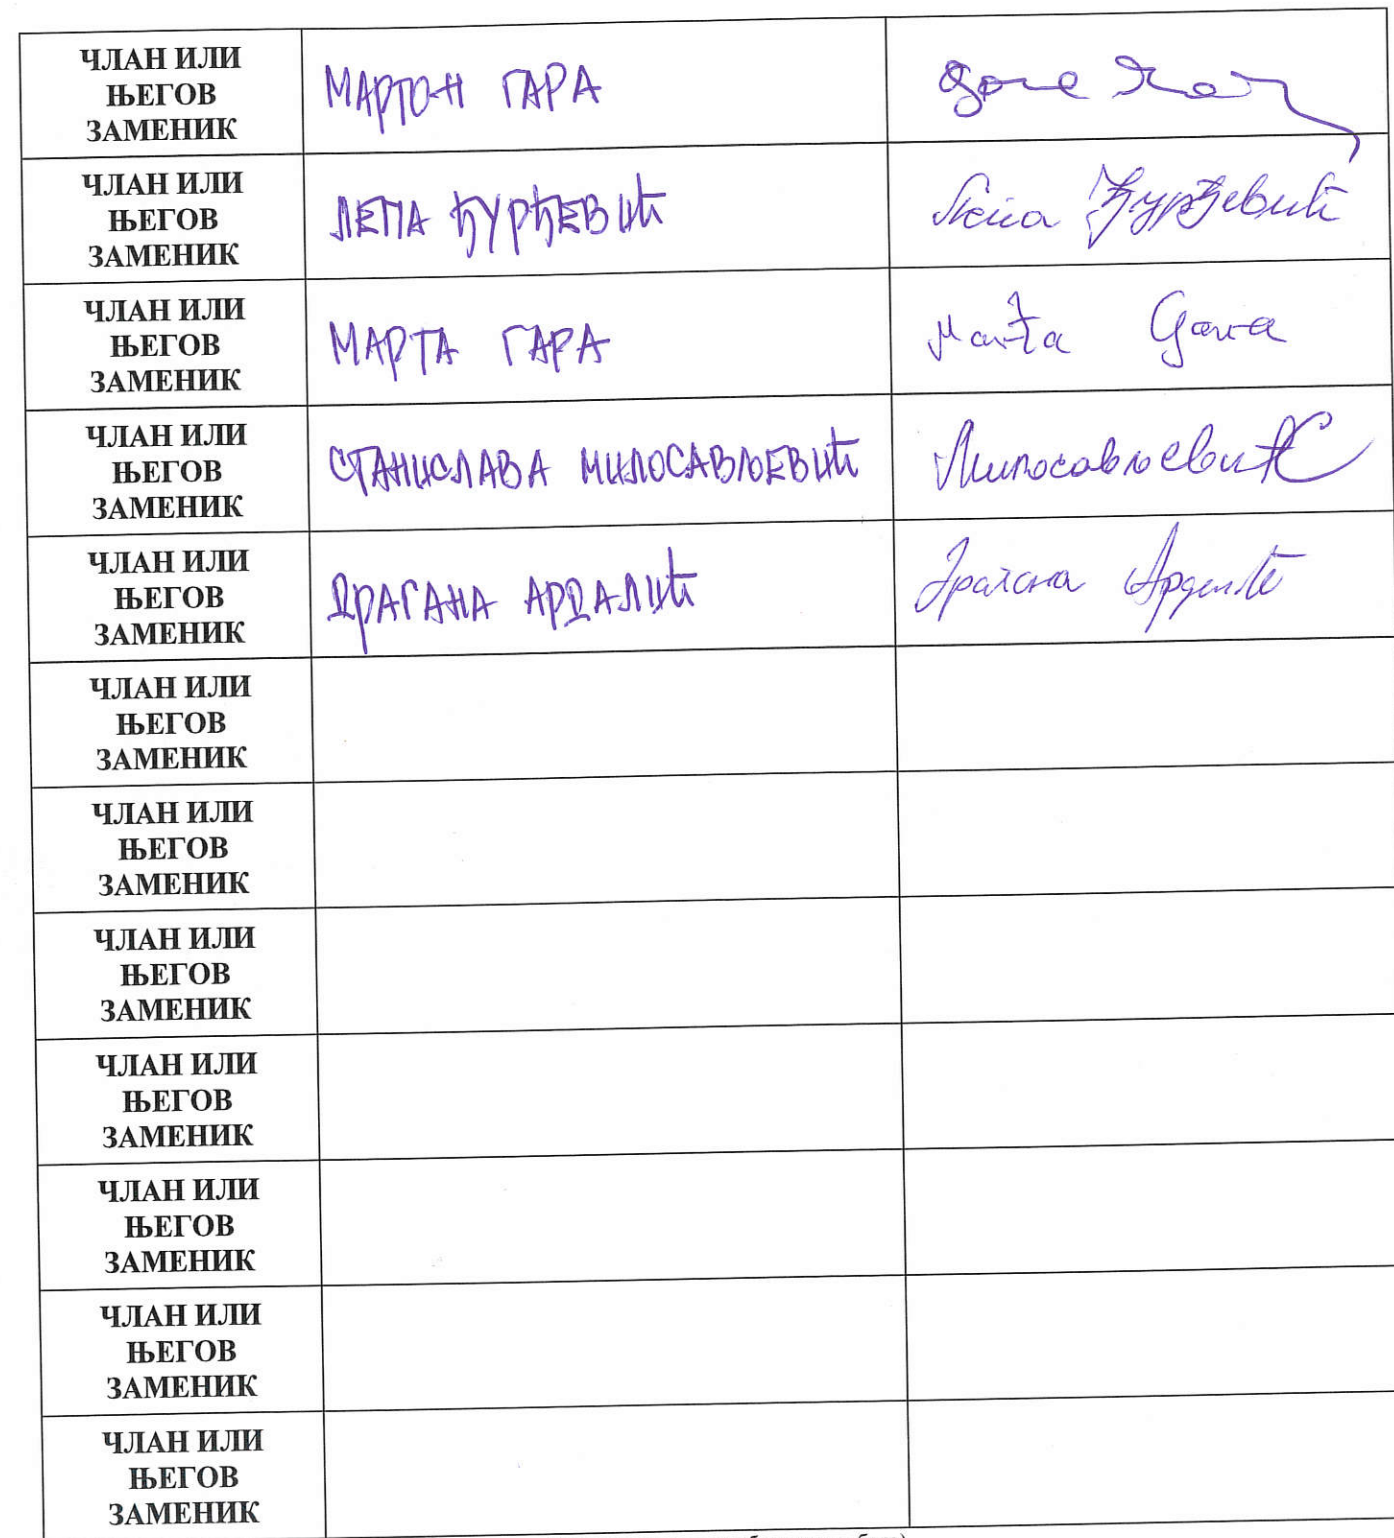 ЧЛАН ИЛИ
ЊЕГОВ
ЗАМЕНИК
МАРТОН ГАРА
ЧЛАН ИЛИ
ЊЕГОВ
ЗАМЕНИК
ЛЕПА ЂУРЂЕВИЋ
Лепа Ђурђевић
ЧЛАН ИЛИ
ЊЕГОВ
ЗАМЕНИК
МАРТА ГАРА
Марта Gara
ЧЛАН ИЛИ
ЊЕГОВ
ЗАМЕНИК
СТАНИСЛАВА МИЛОСАВЉЕВИЋ
ЧЛАН ИЛИ
ЊЕГОВ
ЗАМЕНИК
ДРАГАНА АРДАЛИЋ
Драгана Ардалић
ЧЛАН ИЛИ
ЊЕГОВ
ЗАМЕНИК
ЧЛАН ИЛИ
ЊЕГОВ
ЗАМЕНИК
ЧЛАН ИЛИ
ЊЕГОВ
ЗАМЕНИК
ЧЛАН ИЛИ
ЊЕГОВ
ЗАМЕНИК
ЧЛАН ИЛИ
ЊЕГОВ
ЗАМЕНИК
ЧЛАН ИЛИ
ЊЕГОВ
ЗАМЕНИК
ЧЛАН ИЛИ
ЊЕГОВ
ЗАМЕНИК